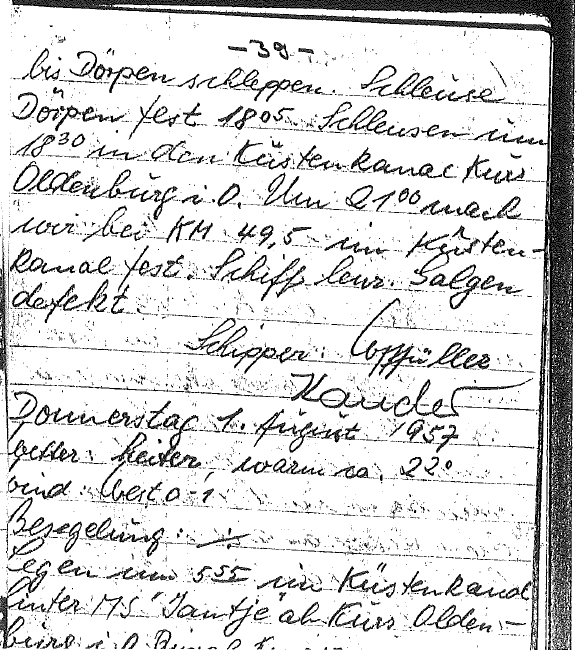 - 39 -
bis Dörpen schleppen. Schleuse
Dörpen fest 18⁰⁵. Schleusen um
18³⁰ in den Küstenkanal Kurs
Oldenburg i. O. Um 21⁰⁰ mach
wir bei KM 49,5 im Küsten-
kanal fest. Schiff lenz. Galgen
defekt.
Schipper:
Donnerstag 1. August 1957
etter: heiter, warm ca. 22°
ind: West 0-1
Besegelung: ⁒
Legen um 5⁵⁵ im Küstenkanal
hinter MS "Jantje" ab Kurs Olden-
burg i. O.